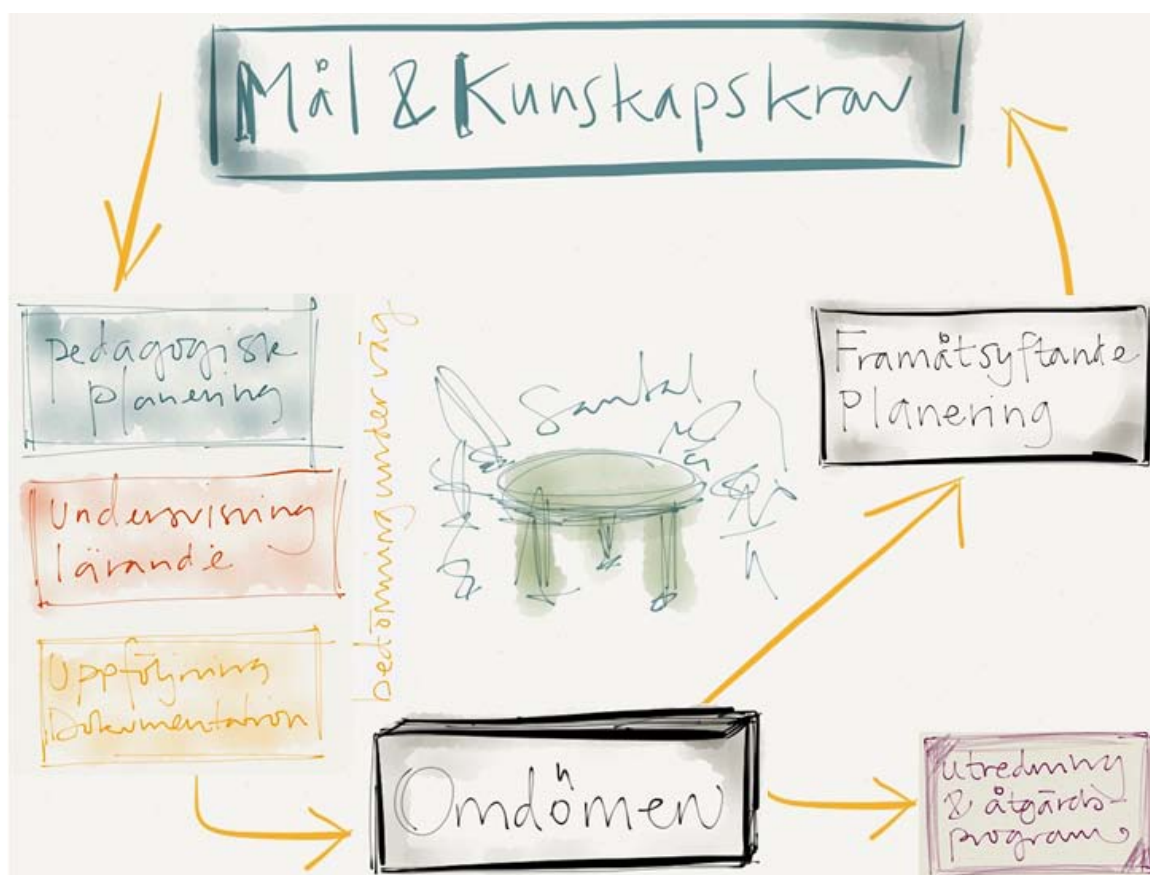 Mål & Kunskapskrav
pedagogisk
planering
Undervisning
lärande
Uppföljning
Dokumentation
bedömning underväg
Samtal
Framåtsyftande
Planering
Omdömen
utredning
& åtgärds-
program